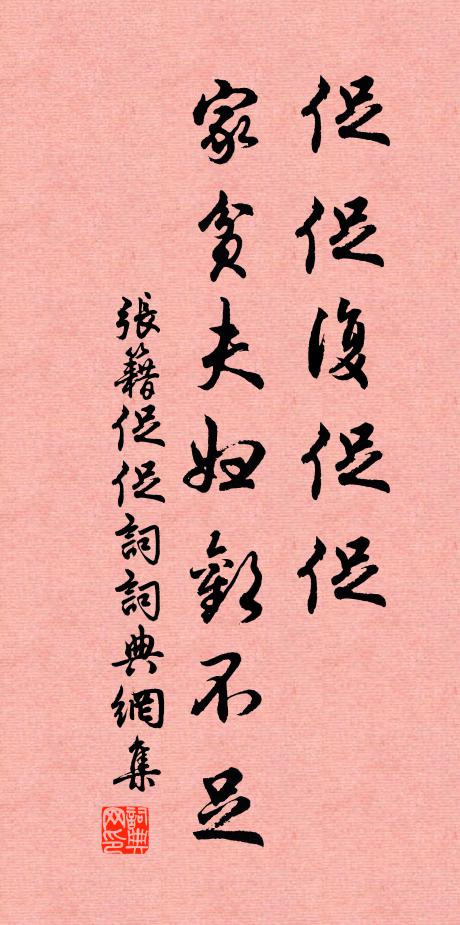 促促復促促
家貧夫婦歡不足
張籍促促詞詞典網集
詞典网印